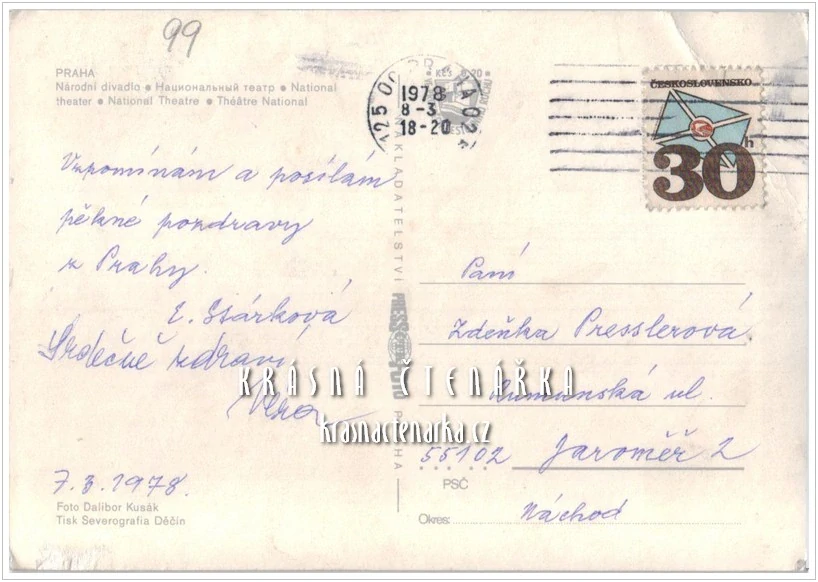 99
PRAHA
Národní divadlo • Национальный театр • National
theater • National Theatre • Théâtre National
Vzpomínám a posílám
pěkné pozdravy
z Prahy.
E. Stárková
Srdečně zdraví
Věra
7.3.1978.
Foto Dalibor Kusák
Tisk Severografia Děčín
NAKLADATELSTVÍ PRESSFOTO PRAHA
Kčs 1,20
PRAHA 024
1978
8-3
18-20
125 00
ČESKOSLOVENSKO
30h
Paní
Zdeňka Presslerová
Rumunská ul.
55102 Jaroměř 2
PSČ
Okres: Náchod
KRÁSNÁ ČTENÁŘKA
krasnactenarka.cz